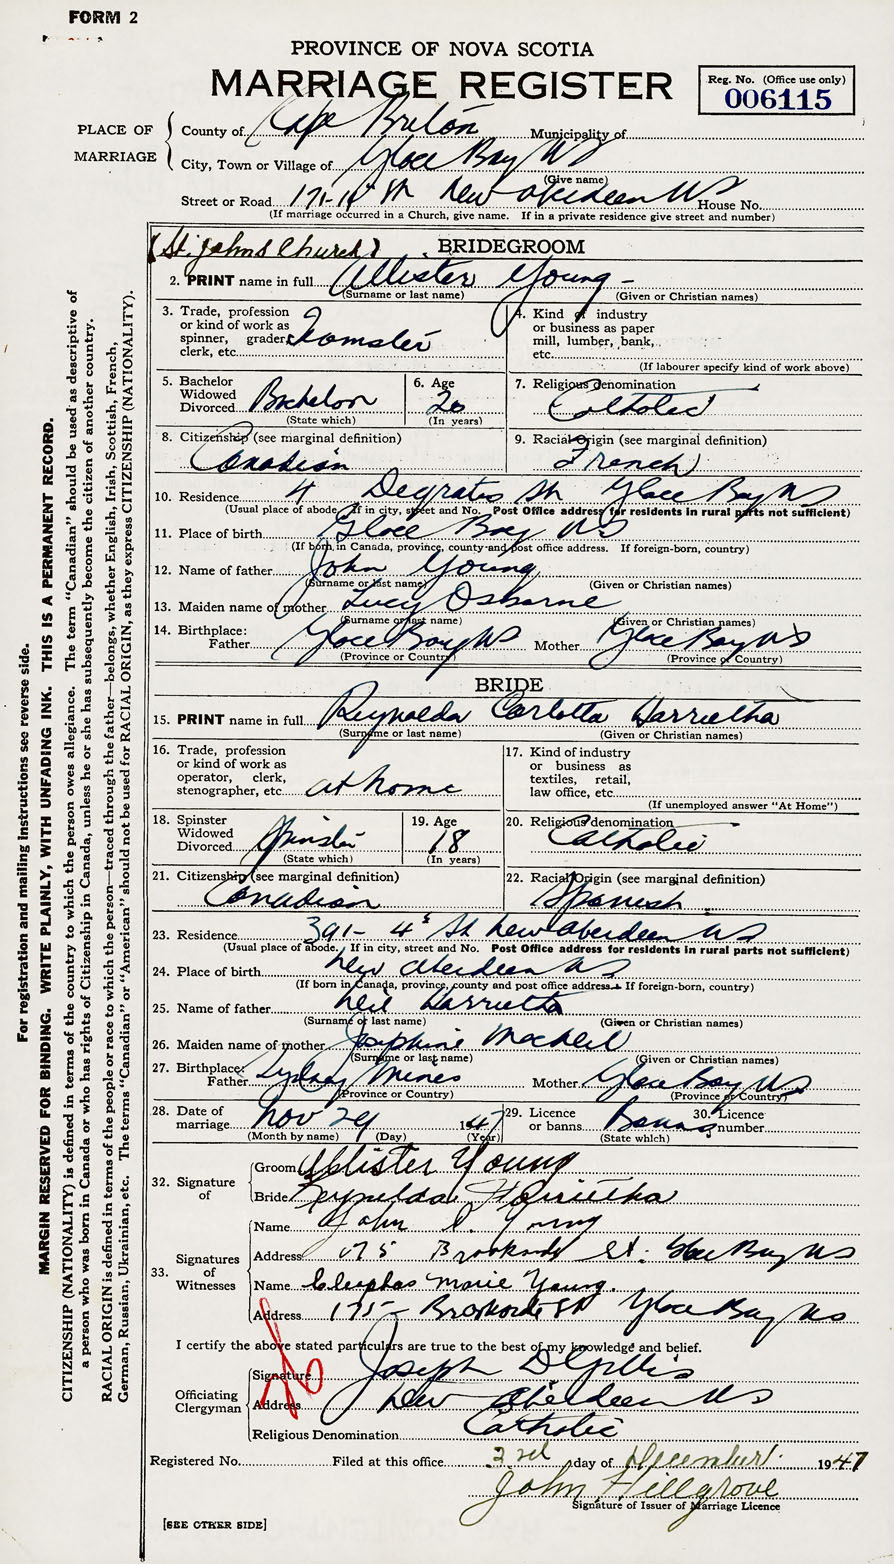 FORM 2
PROVINCE OF NOVA SCOTIA
MARRIAGE REGISTER
Reg. No. (Office use only)
006115
PLACE OF MARRIAGE
County of Cape Breton Municipality of
City, Town or Village of Glace Bay NS
(Give name)
Street or Road 171-10th St New Aberdeen NS House No.
(If marriage occurred in a Church, give name. If in a private residence give street and number)
(St. Johns Church) BRIDEGROOM
2. PRINT name in full Allister Young -
(Surname or last name) (Given or Christian names)
3. Trade, profession or kind of work as spinner, grader, clerk, etc. Teamster
4. Kind of industry or business as paper mill, lumber, bank, etc.
(If labourer specify kind of work above)
5. Bachelor Widowed Divorced Bachelor (State which)
6. Age 20 (In years)
7. Religious denomination Catholic
8. Citizenship (see marginal definition) Canadian
9. Racial Origin (see marginal definition) French
10. Residence 4 St Glace Bay NS
(Usual place of abode. If in city, street and No. Post Office address for residents in rural parts not sufficient)
11. Place of birth Glace Bay NS
(If born in Canada, province, county and post office address. If foreign-born, country)
12. Name of father John Young
(Surname or last name) (Given or Christian names)
13. Maiden name of mother Lucy Osborne
(Surname or last name) (Given or Christian names)
14. Birthplace: Father Glace Bay NS Mother Glace Bay NS
(Province or Country) (Province or Country)
BRIDE
15. PRINT name in full Reynelda Carlotta Harrietha
(Surname or last name) (Given or Christian names)
16. Trade, profession or kind of work as operator, clerk, stenographer, etc. at home
17. Kind of industry or business as textiles, retail, law office, etc.
(If unemployed answer "At Home")
18. Spinster Widowed Divorced Spinster (State which)
19. Age 18 (In years)
20. Religious denomination Catholic
21. Citizenship (see marginal definition) Canadian
22. Racial Origin (see marginal definition) Spanish
23. Residence 391- 4th St New Aberdeen NS
(Usual place of abode. If in city, street and No. Post Office address for residents in rural parts not sufficient)
24. Place of birth New Aberdeen NS
(If born in Canada, province, county and post office address. If foreign-born, country)
25. Name of father Neil Harrietha
(Surname or last name) (Given or Christian names)
26. Maiden name of mother Josephine MacNeil
(Surname or last name) (Given or Christian names)
27. Birthplace: Father Sydney Mines Mother Glace Bay NS
(Province or Country) (Province or Country)
28. Date of marriage Nov 29 1947
(Month by name) (Day) (Year)
29. Licence or banns Banns (State which)
30. Licence number
32. Signature of
Groom Allister Young
Bride Reynelda Harrietha
33. Signatures of Witnesses
Name John Young
Address 175 St. Glace Bay NS
Name Cleophas Marie Young.
Address 175- St Glace Bay NS
I certify the above stated particulars are true to the best of my knowledge and belief.
Officiating Clergyman
Signature Joseph D Gillis
Address New Aberdeen NS
Religious Denomination Catholic
Registered No. Filed at this office 2nd day of December 1947
John Hillgrove
Signature of Issuer of Marriage Licence
[SEE OTHER SIDE]
For registration and mailing instructions see reverse side.
MARGIN RESERVED FOR BINDING. WRITE PLAINLY, WITH UNFADING INK. THIS IS A PERMANENT RECORD.
CITIZENSHIP (NATIONALITY) is defined in terms of the country to which the person owes allegiance. The term "Canadian" should be used as descriptive of
a person who was born in Canada or who has rights of Citizenship in Canada, unless he or she has subsequently become the citizen of another country.
RACIAL ORIGIN is defined in terms of the people or race to which the person—traced through the father—belongs, whether English, Irish, Scottish, French,
German, Russian, Ukrainian, etc. The terms "Canadian" or "American" should not be used for RACIAL ORIGIN, as they express CITIZENSHIP (NATIONALITY).